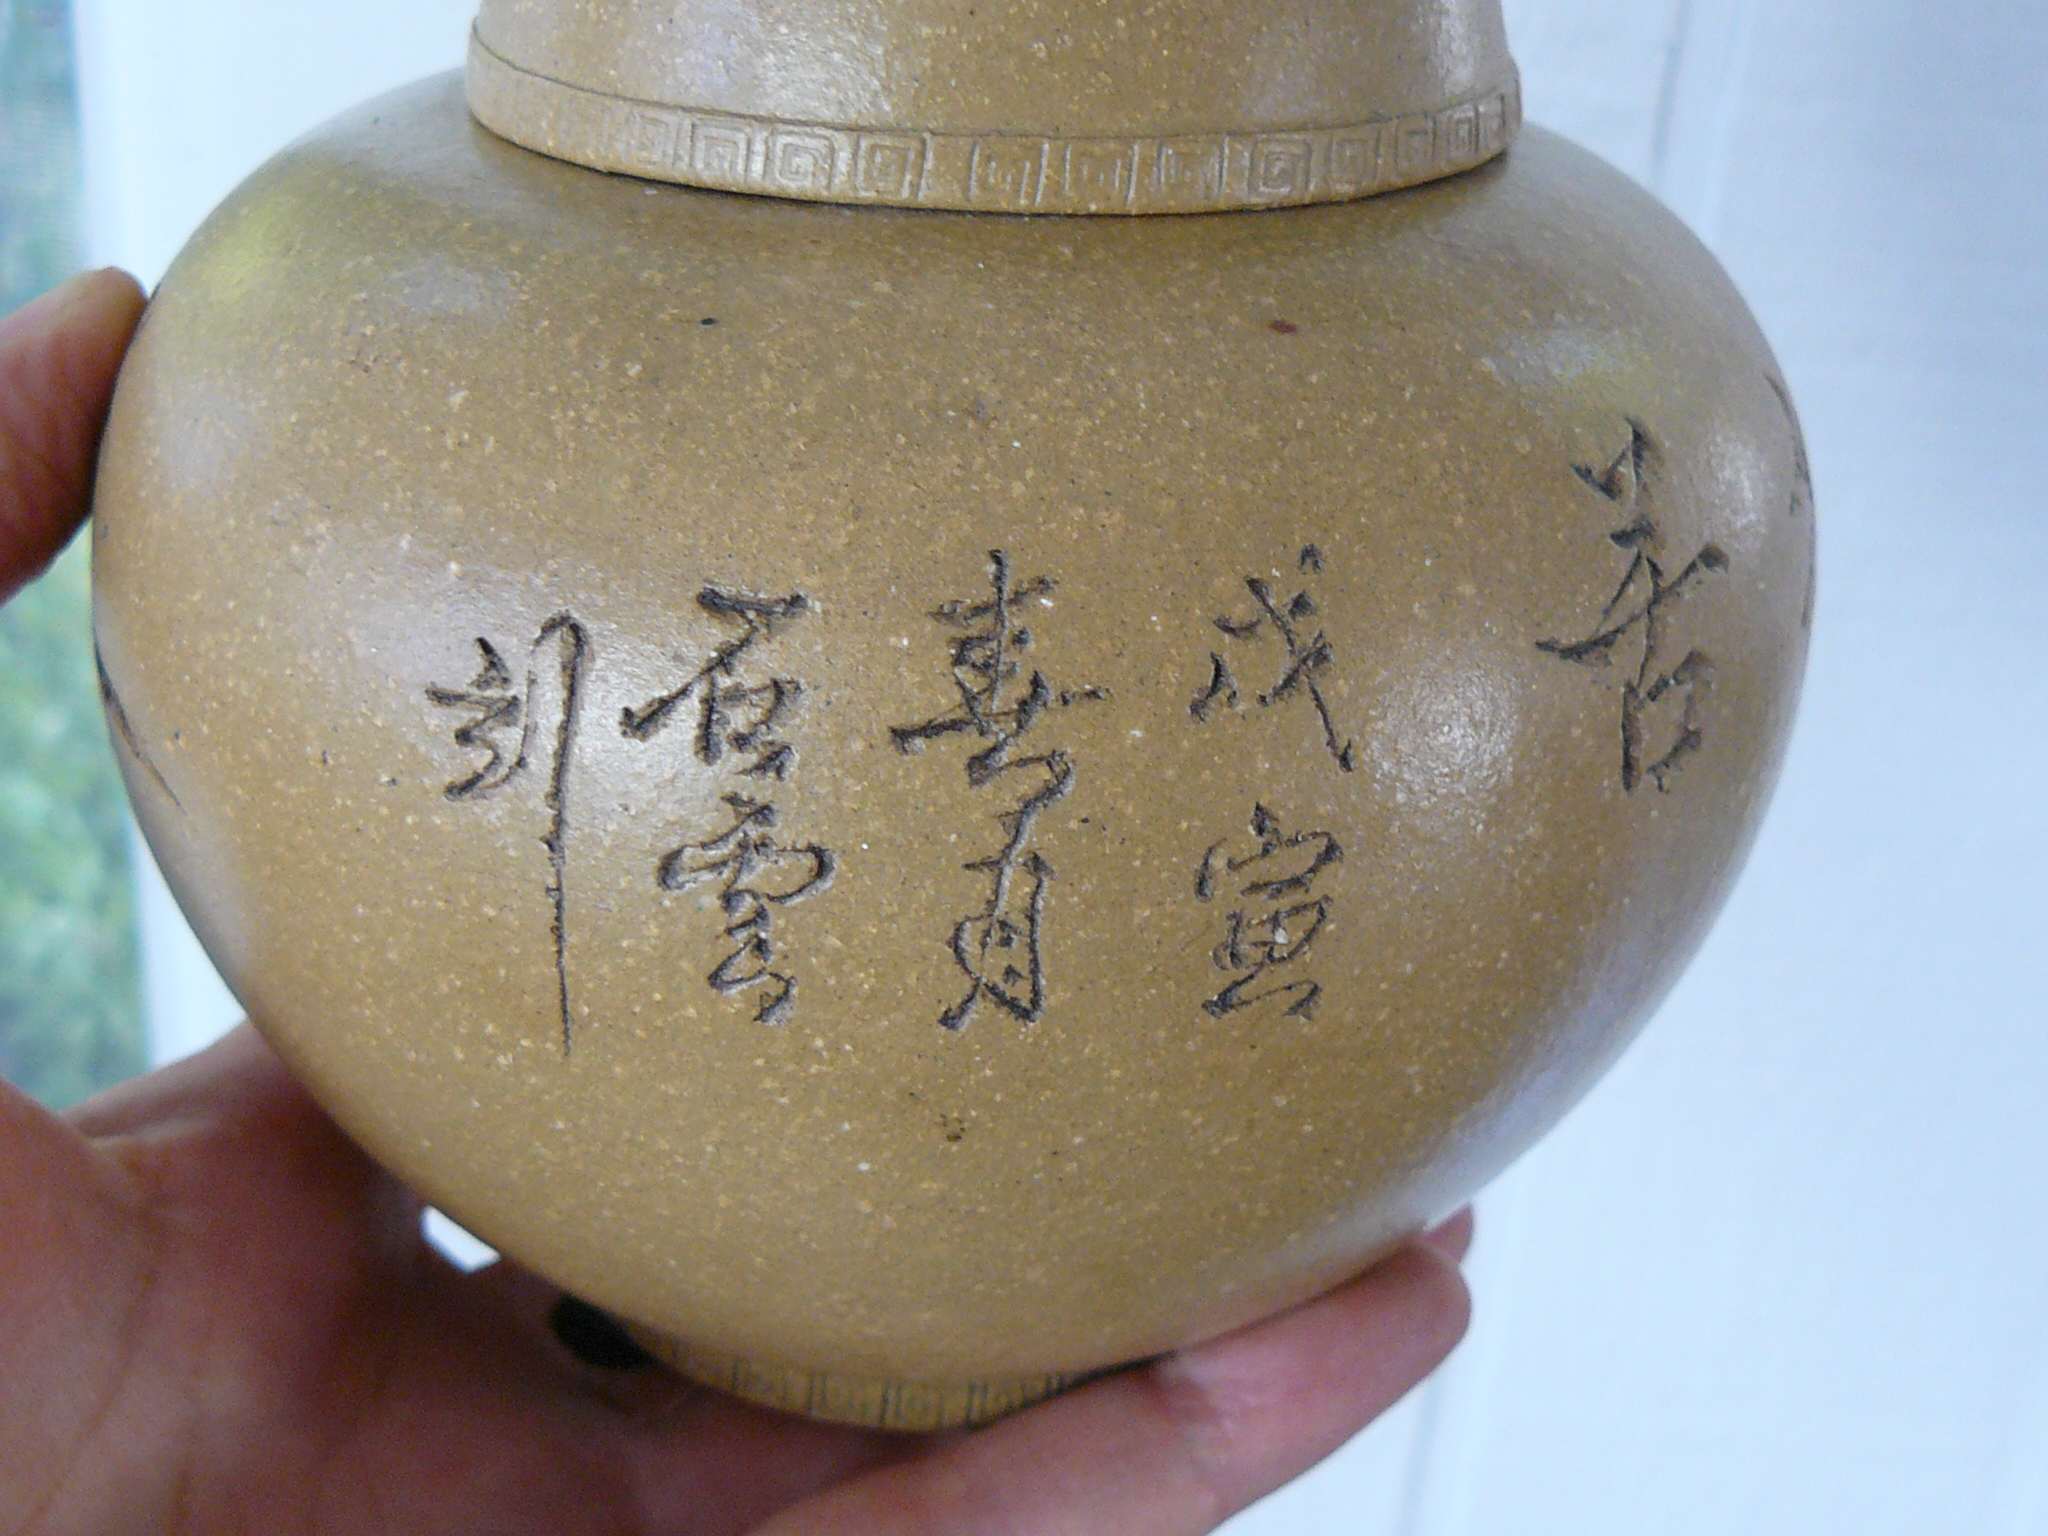 香
戊寅
春月
石雪
刻